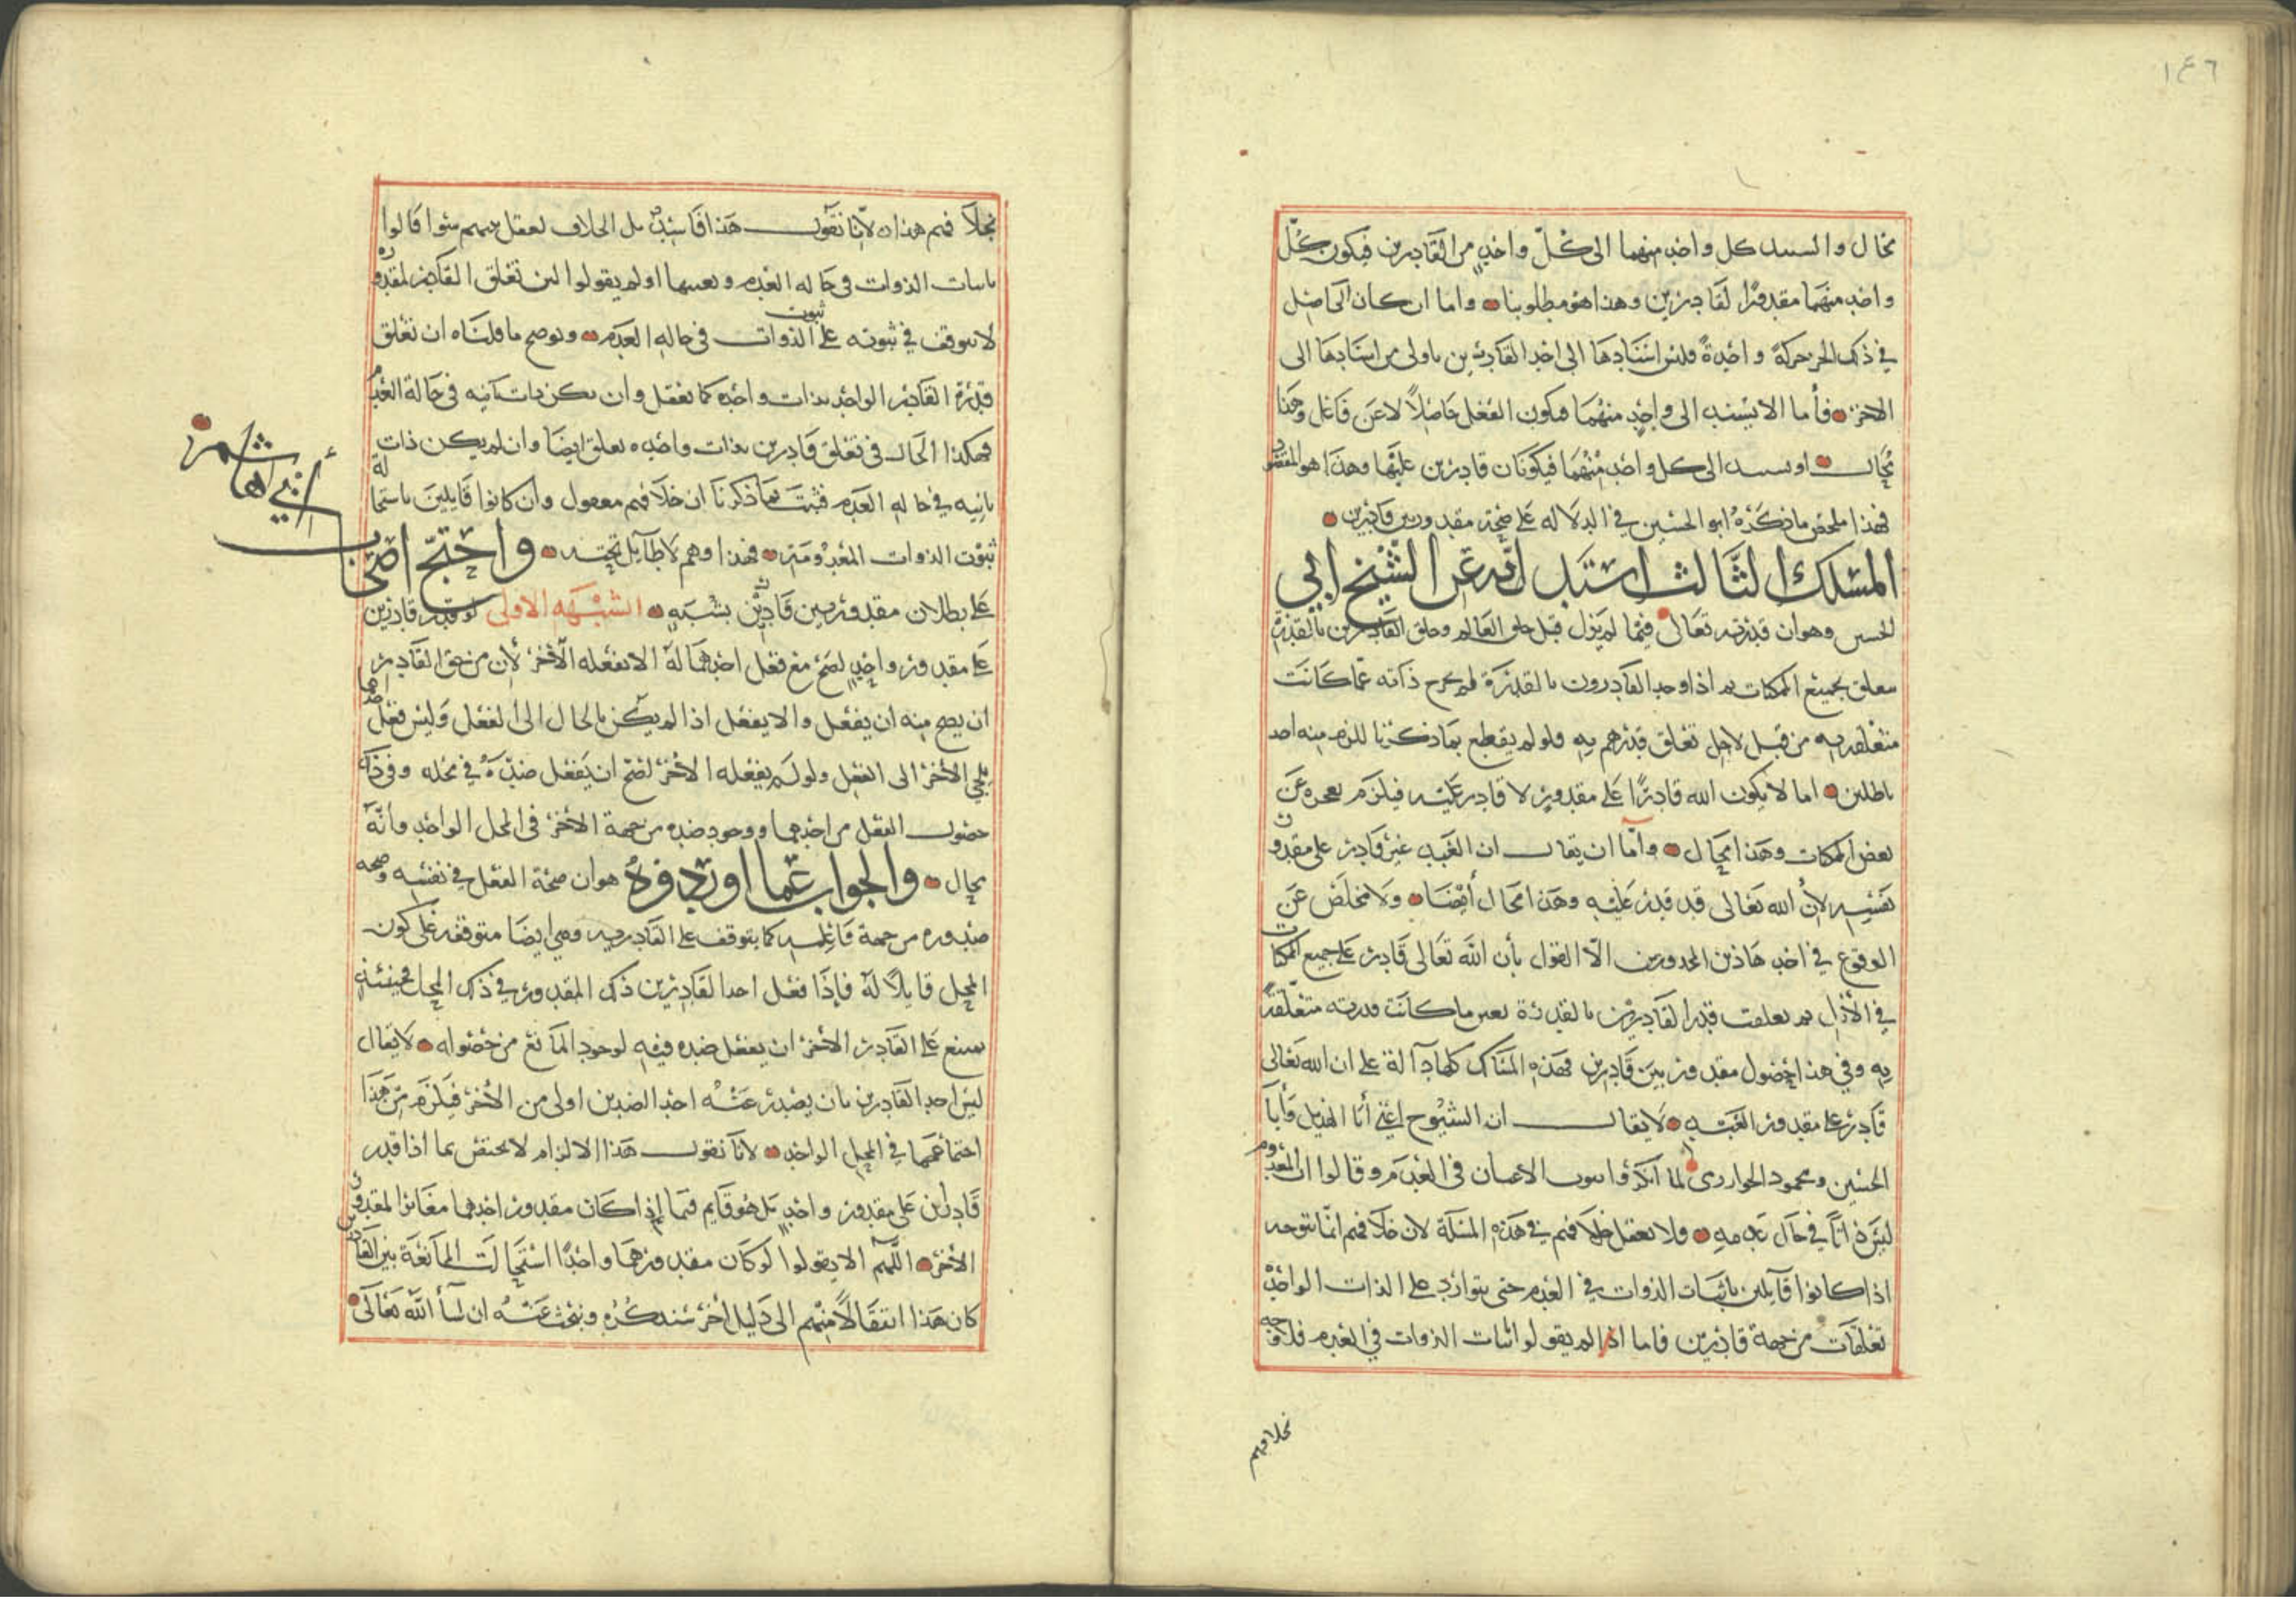 ١٤٦
محال والسند كل واحد منهما الى كلّ واحد من القادرين فيكون كلّ
واحد منهما مقدورًا لقادرين وهذا هو مطلوبنا واما ان كان الحاصل
في ذلك الجزء حركةً واحدةً فليس اسنادها الى احد القادرين باولى من اسنادها الى
الاخر فأما الا يستند الى واحدٍ منهما فيكون الفعل حاصلاً لا عن فاعل وهذا
محال او يستند الى كل واحد منهما فيكونان قادرين عليها وهذا هو المقصود
فهذا ملخص ما ذكره ابو الحسين في الدلالة على صحة مقدور بين قادرين
المسلك الثالث استدل به عن الشيخ ابي
الحسين وهو ان قدرته تعالى فيما لم يزل قبل خلق العالم وخلق القادرين بالقدرة
متعلق بجميع الممكنات ثم اذا وجد القادرون بالقدرة لم يخرج ذاته عما كانت
متعلقة به من قبل لاجل تعلق قدرهم به فلو لم يقطع بما ذكرنا للزم منه احد
باطلين اما لا يكون الله قادرًا على مقدورٍ لا قادر عليه فيلزم عجزه عن
بعض الممكنات وهذا محال وامّا ان يقال ان العبد غير قادر على مقدور
نفسه لأن الله تعالى قد قدر عليه وهذا محال أيضا ولا مخلص عن
الوقوع في احد هاذين المحذورين الّا القول بأن الله تعالى قادر على جميع الممكنات
في الأزل ثم تعلقت قدر القادرين بالقدرة بعين ما كانت قدرته متعلقة
به وفي هذا حصول مقدور بين قادرين فهذه المسالك كلها دآلة على ان الله تعالى
قادر على مقدور العبد لا يقال ان الشيوخ اعني أبا الهذيل وأبا
الحسين ومحمود الخوارزمي لما انكروا ثبوت الاعيان في العدم وقالوا ان المعدوم
ليس ذاتًا في حال عدمه فلا يعقل خلافهم في هذه المسألة لان خلافهم انما يتوجه
اذا كانوا قآيلين باثبات الذوات في العدم حتى يتوارد على الذات الواحدة
تعلقات من جهة قادرين فاما اذا لم يقولوا باثبات الذوات في العدم فلا وجه
خلافهم
بخلافهم هذا لانا نقول هذا فاسد بل الخلاف يعقل بينهم سوا قالوا
باثبات الذوات في حاله العدم ونفيها او لم يقولوا لان تعلق القادر لمقدوره
لا يتوقف في ثبوته على ثبوت الذوات في حاله العدم ونوضح ما قلناه ان تعلق
قدرة القادر الواحد بذات واحده كما يعقل وان لم يكن ذات ثانيه في حالة العدم
فهكذا الحال في تعلق قادرين بذات واحده يعلق ايضا وان لم يكن ذات
ثانيه في حاله العدم فثبت بما ذكرنا ان خلافهم معقول وان كانوا قايلين باستحالة
ثبوت الذوات المعدومة فهذا وهم لا طآيل تحته واحتج اصحاب
أبي هاشم
على بطلان مقدور بين قادرين بشبه الشبهه الاولى لو قدر قادرين
على مقدور واحدٍ لصح مع فعل احدهما له الا يفعله الآخر لأن من حق القادر
ان يصح منه ان يفعل والا يفعل اذا لم يكن بالحال الى الفعل وليس فعل احدهما
يلجي الأخر الى الفعل ولو لم يفعله الأخر لصح ان يفعل ضده في محله وفي ذلك
حصول الفعل من احدهما ووجود ضده من جهة الأخر في المحل الواحد وأنّه
محال والجواب عما اوردوه هو ان صحة الفعل في نفسه وصحه
صدوره من جهة فاعله كما يتوقف على القادريه وهي ايضا متوقفة على كون
المحل قابلاً له فإذا فعل احد القادرين ذلك المقدور في ذلك المحل فحينئذٍ
يمتنع على القادر الأخر ان يفعل ضده فيه لوجود المانع من حصوله لا يقال
ليس احد القادرين بان يصدر عنه احد الضدين اولى من الأخر فيلزم من هذا
اجتماعهما في المحل الواحد لانا نقول هذا الالزام لا يختص بما اذا قدر
قادران على مقدور واحدٍ بل هو قايم فيما إذا كان مقدور احدهما مغايرا لمقدور
الأخر اللّهم الا يقولوا لو كان مقدورهما واحدًا استحالت الممانعة بين القادرين
كان هذا انتقالاً منهم الى دليل أخر سنذكره ونبحث عنه ان شأ الله تعالى